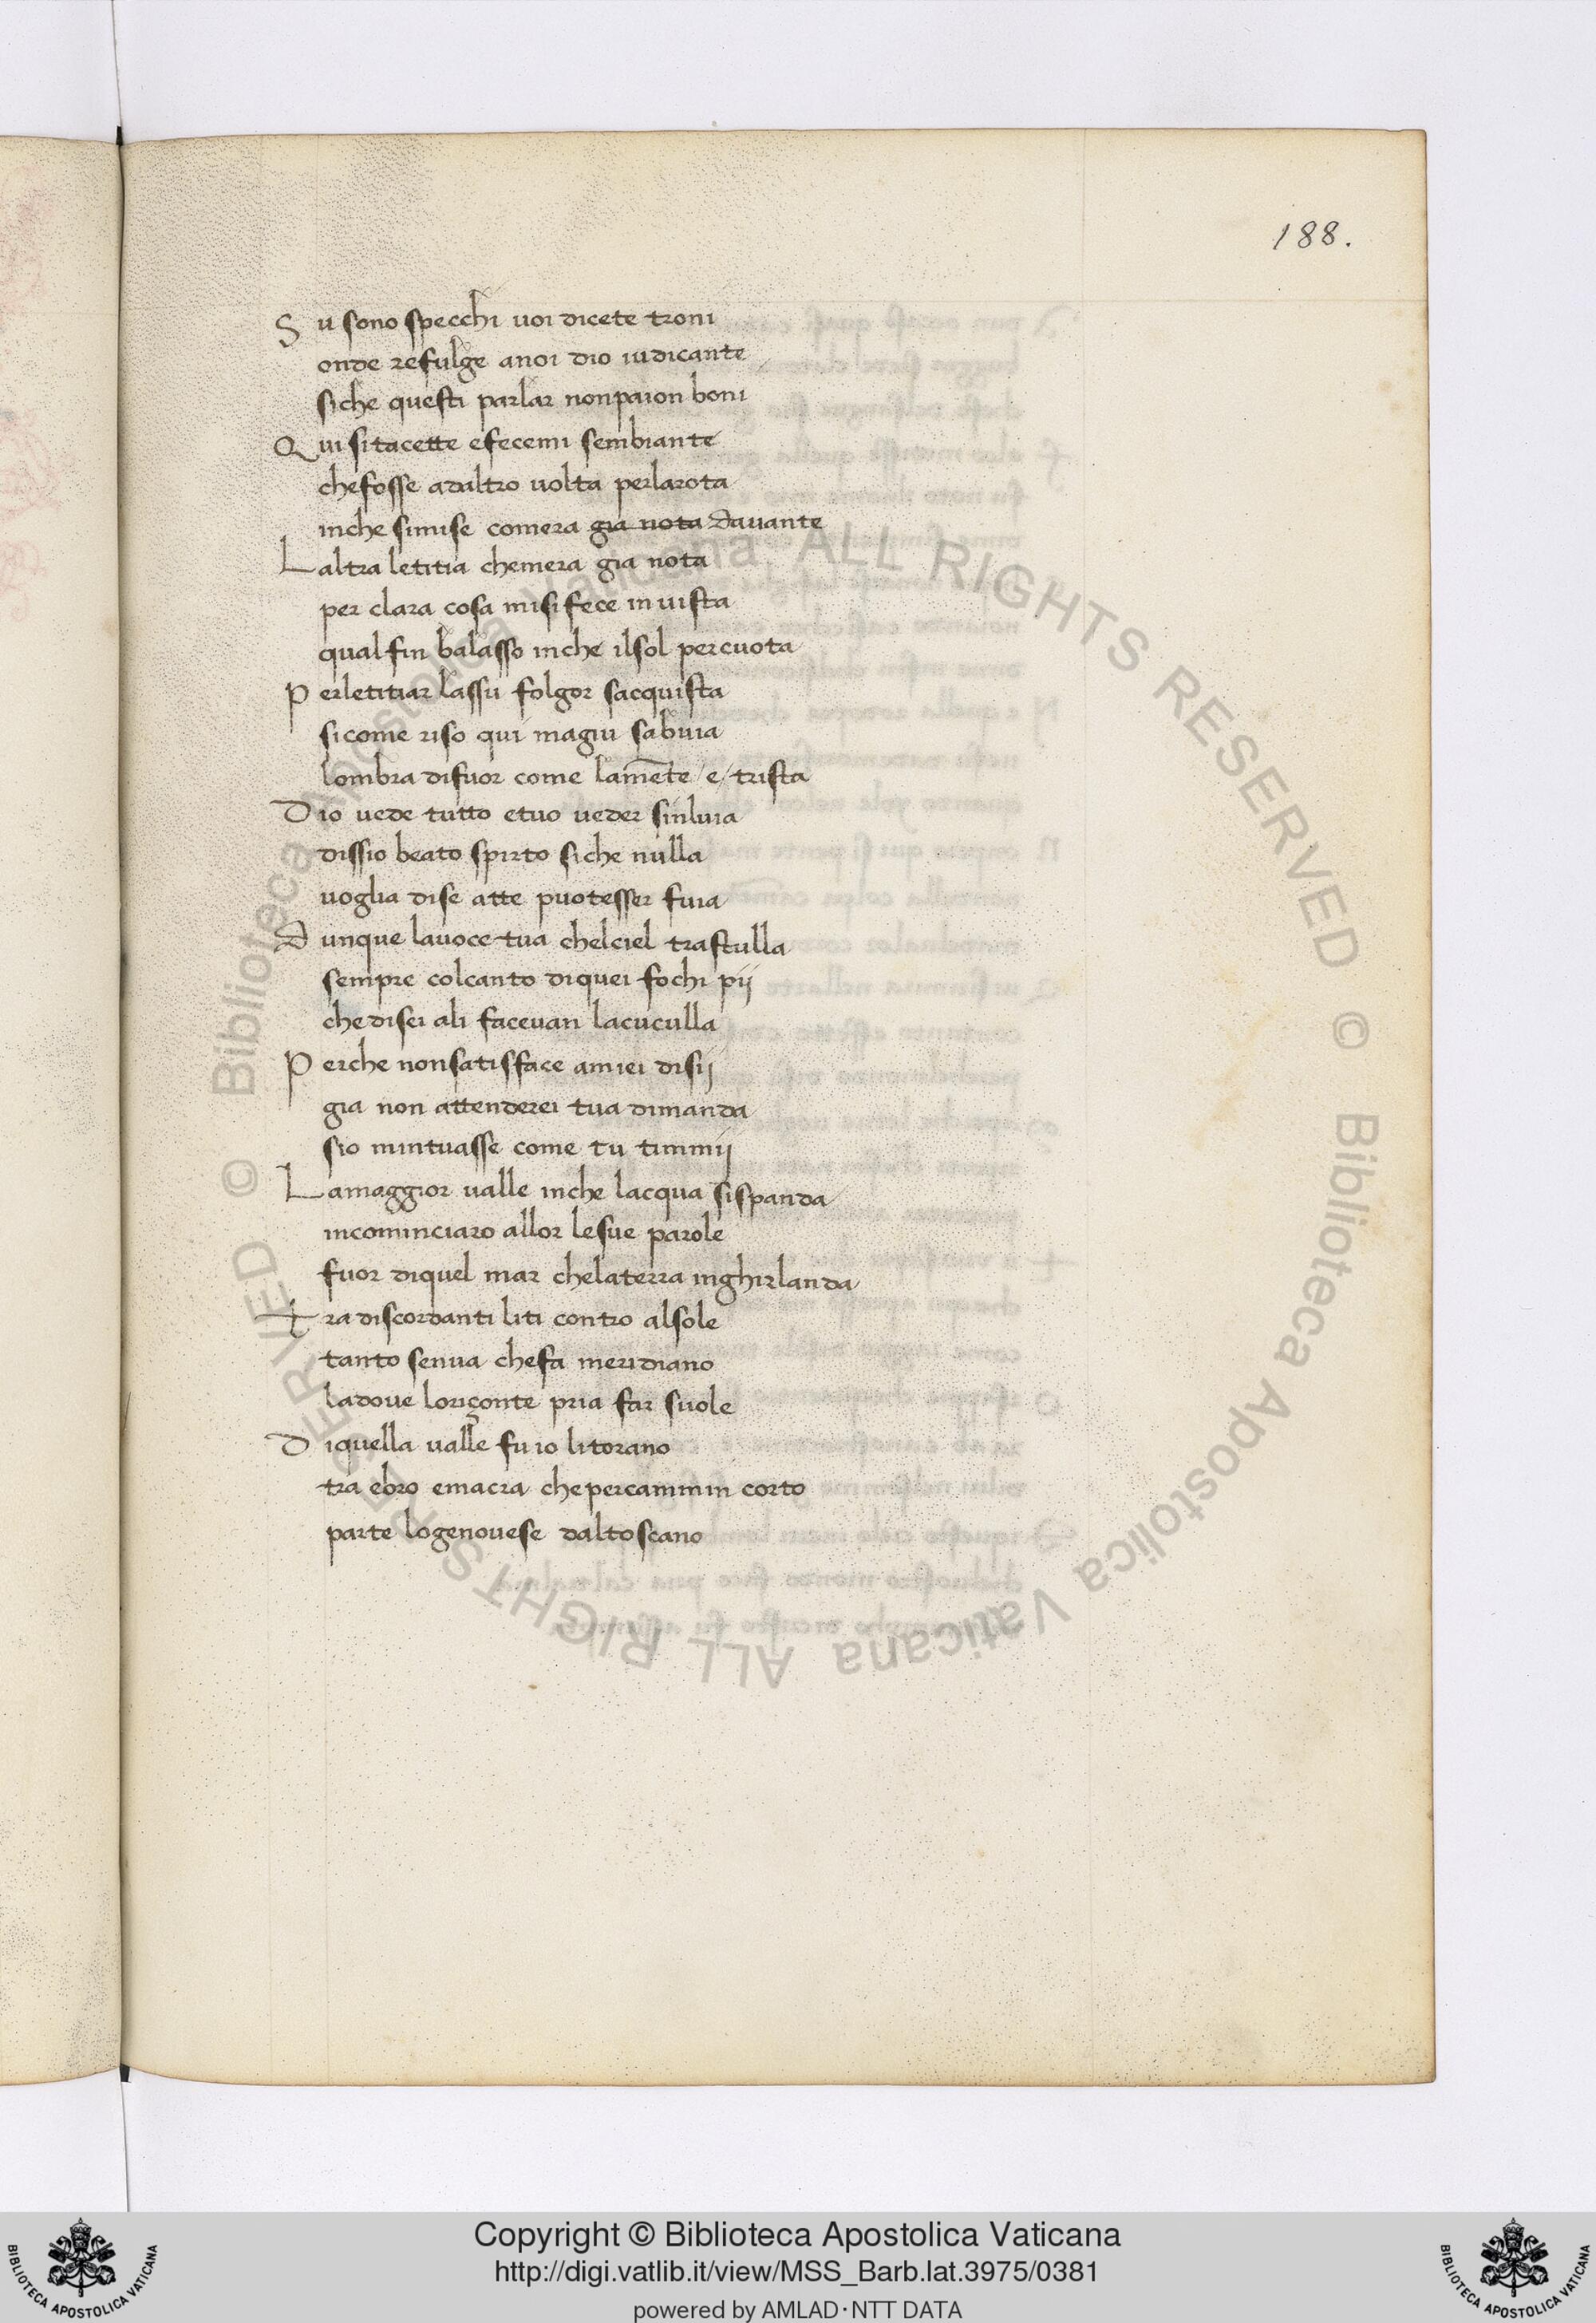 188.
Su sono specchi uoi dicete troni
onde refulge anoi dio iudicante
siche questi parlar nonpaion boni
Qui sitacette efecemi sembiante
chefosse adaltro uolta perlarota
inche simise comera gia nota dauante
Laltra letitia chemera gia nota
per clara cosa misifece inuista
qualfin balasso inche ilsol percuota
Perletitiar lassu folgor sacquista
sicome riso qui magiu sabuia
lombra difuor come lamēte e trista
Dio uede tutto etuo ueder sinluia
dissio beato spirto siche nulla
uoglia dise atte puotesser fuia
Dunque lauoce tua chelciel trastulla
sempre colcanto diquei fochi pij
chedisei ali faceuan lacuculla
Perche nonsatisface amiei disij
gia non attenderei tua dimanda
sio mintuasse come tu timmij
Lamaggior ualle inche lacqua sispanda
incominciaro allor lesue parole
fuor diquel mar chelaterra inghirlanda
tra discordanti liti contro alsole
tanto senua chefa meridiano
ladoue loriçonte pria far suole
Diquella ualle fu io litorano
tra ebro emacra chepercammin corto
parte logenouese daltoscano
© Biblioteca Apostolica Vaticana ALL RIGHTS RESERVED © Biblioteca Apostolica Vaticana ALL RIGHTS RESERVED
Copyright © Biblioteca Apostolica Vaticana
http://digi.vatlib.it/view/MSS_Barb.lat.3975/0381
powered by AMLAD·NTT DATA
BIBLIOTECA APOSTOLICA VATICANA
BIBLIOTECA APOSTOLICA VATICANA